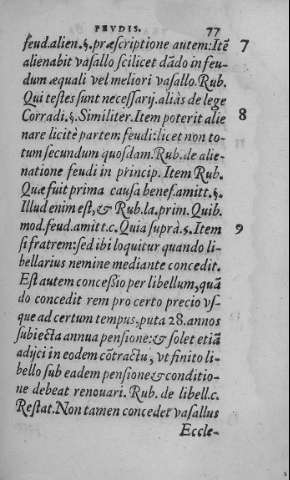 FEVDIS. 77
feud.alien.§.præscriptione autem:Itē 7
alienabit vasallo scilicet dādo in feu-
dum æquali vel meliori vasallo. Rub.
Qui testes sunt necessarij. aliàs de lege
Corradi.§.Similiter.Item poterit alie 8
nare licitè partem feudi:licet non to-
tum secundum quosdam.Rub.de alie-
natione feudi in princip. Item Rub.
Quæ fuit prima causa benef.amitt.§.
Illud enim est,& Rub.la.prim.Quib.
mod.feud.amitt.c.Quia suprà.§.Item 9
si fratrem:sed ibi loquitur quando li-
bellarius nemine mediante concedit.
Est autem concessio per libellum,quā
do concedit rem pro certo precio vs-
que ad certum tempus.puta 28.annos
subiecta annua pensione:& solet etiā
adijci in eodem cōtractu, vt finito li-
bello sub eadem pensione & conditio-
ne debeat renouari. Rub. de libell.c.
Restat. Non tamen concedet vasallus
Eccle-